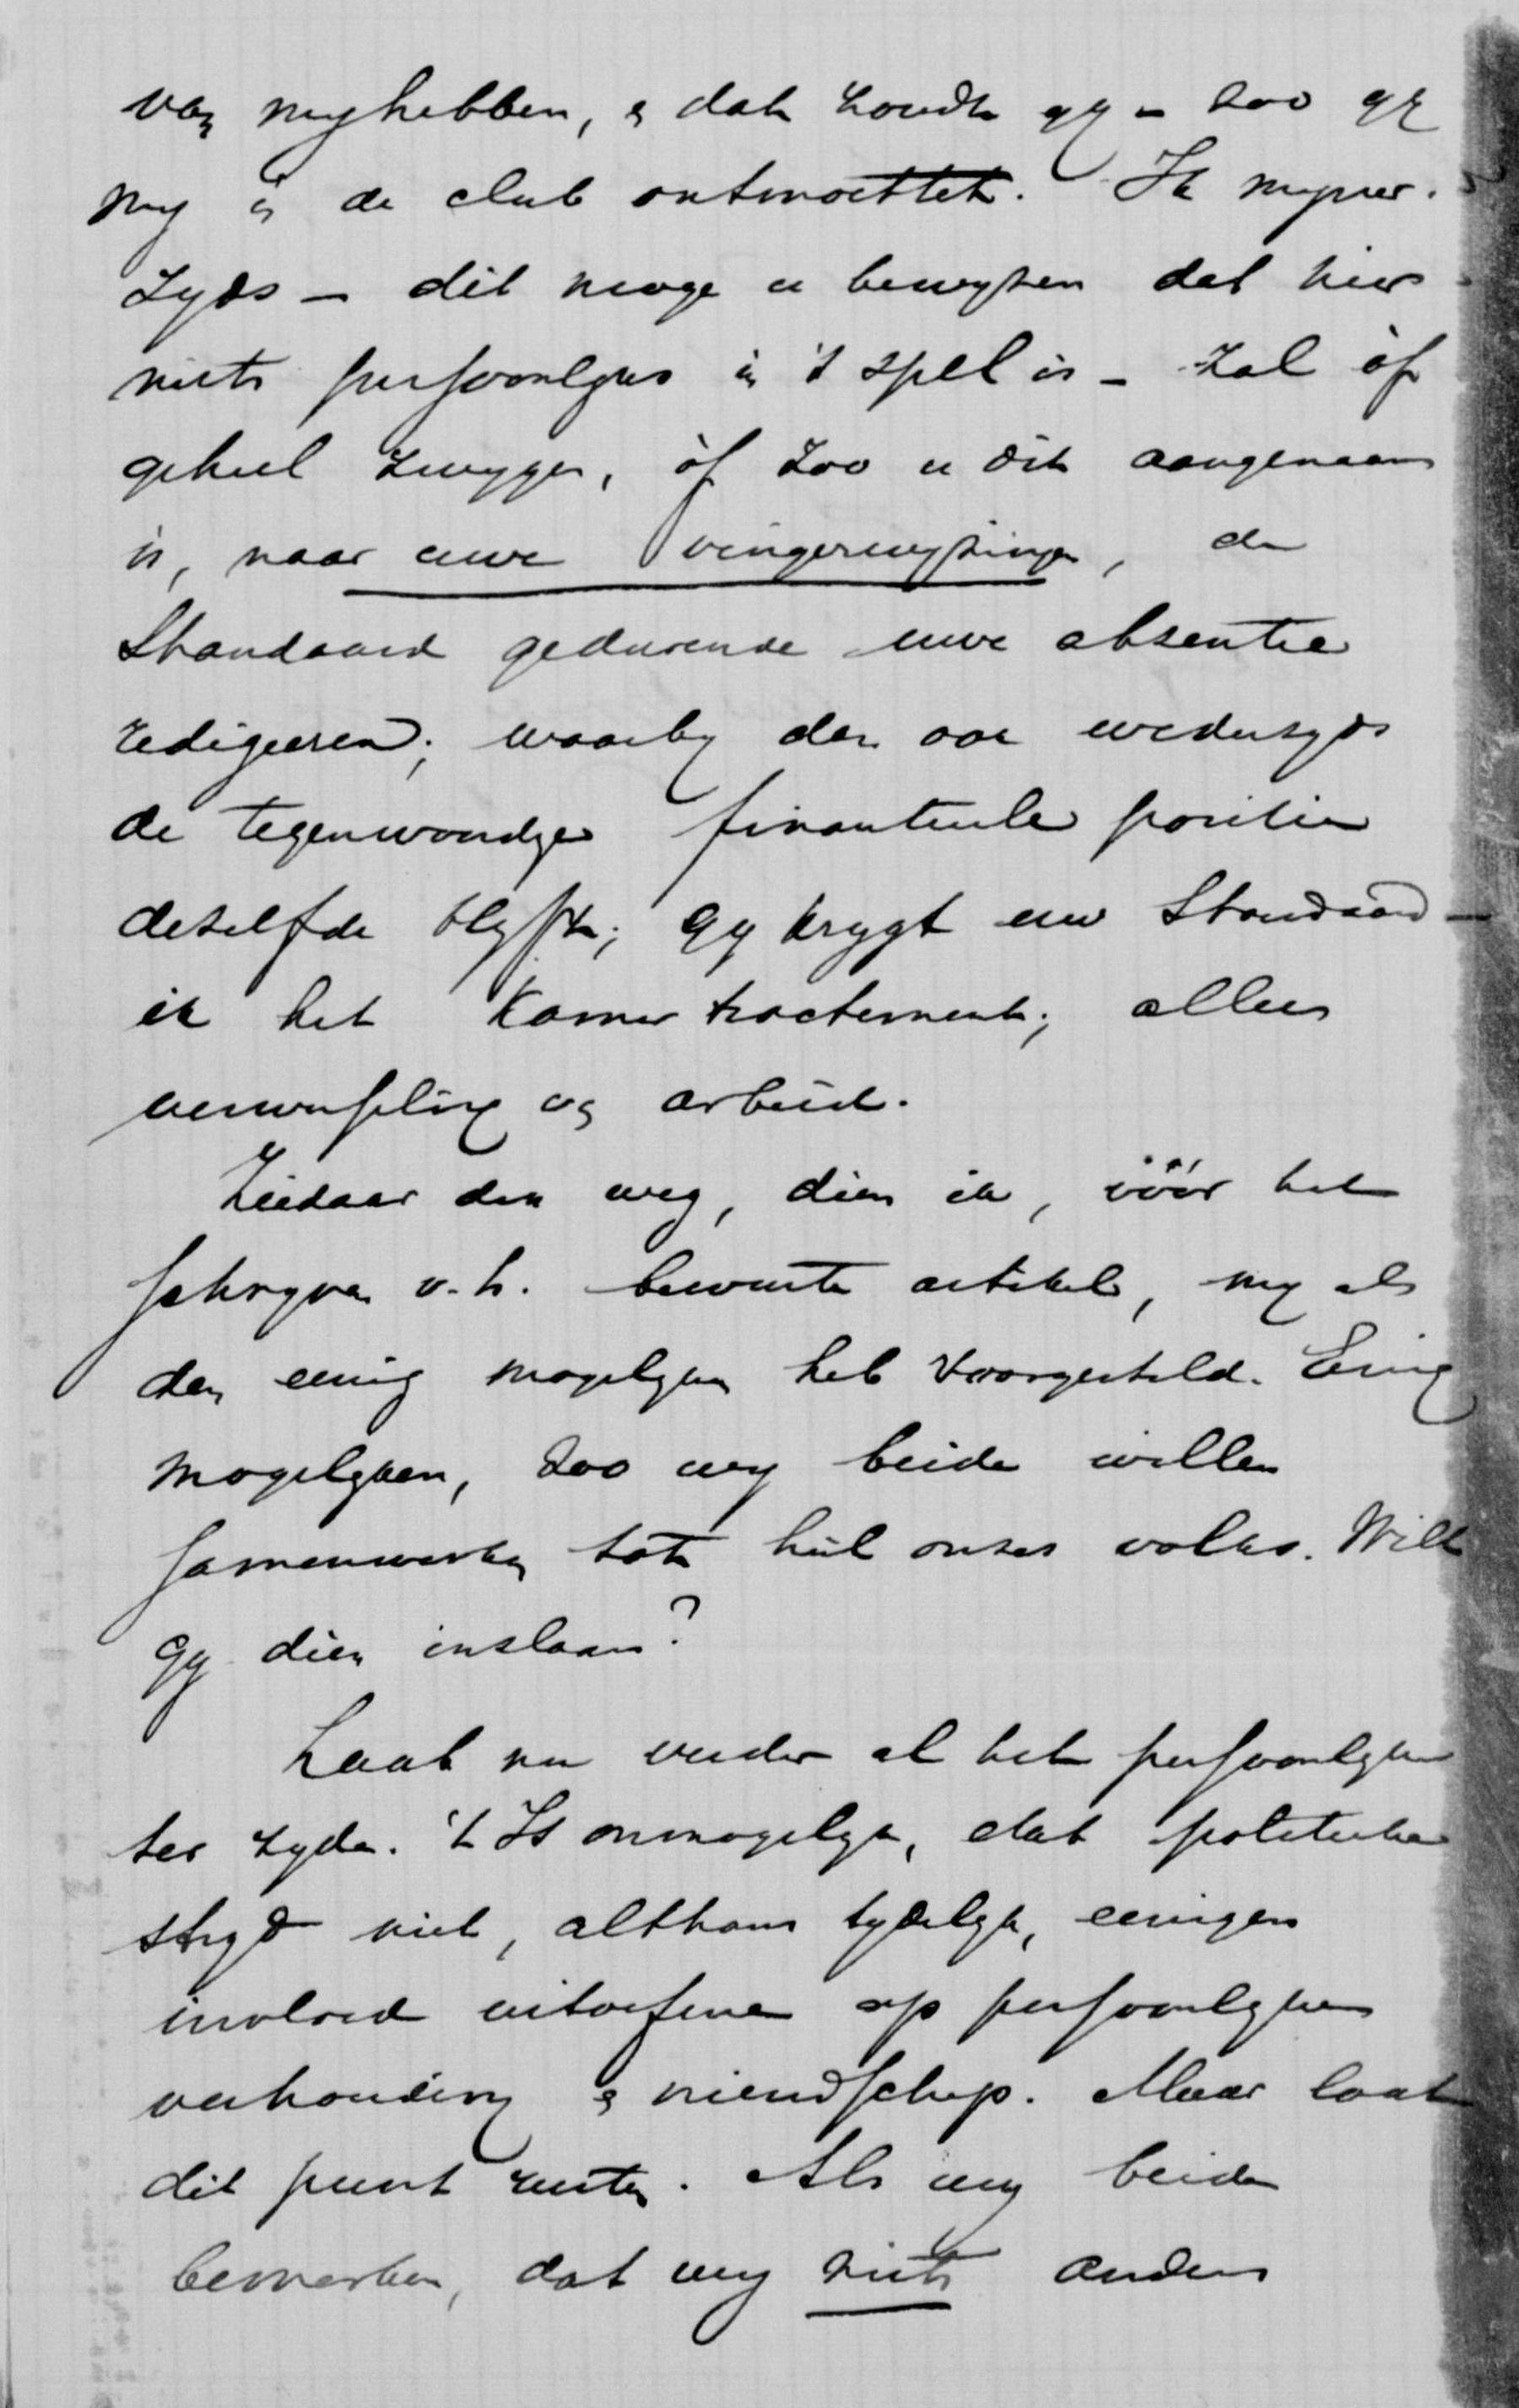 van my hebben, & dat houdt gy – zoo gy
my in de club ontmoettet. Ik myner-
zyds – dit moge u bewyzen dat hier
niets persoonlyks in 't spel is – zal òf
geheel zwygen, òf zoo u dit aangenaam
is, naar uwe vingerwyzingen, de
Standaard gedurende uwe absentie
redigeeren; waarby dan ook wederzyds
de tegenwoordige finantieele positie
dezelfde blyft; gy krygt uw Standaard –
ik het Kamertractement; alleen
verwisseling van arbeid.
Ziedaar den weg, dien ik, vóór het
schryven v. h. bewuste artikel, my als
den eenig mogelyken heb voorgesteld. Eenig
mogelyken, zoo wy beide willen
samenwerken tot heil onzes volks. Wilt
gy dien inslaan?
Laat nu verder al het persoonlyke
ter zyde. 't Is onmogelyk, dat politieke
stryd niet, althans tydelyk, eenigen
invloed uitoefene op persoonlyke
verhouding & vriendschap. Maar laat
dit punt rusten. Als wy beide
bemerken, dat wy niets anders